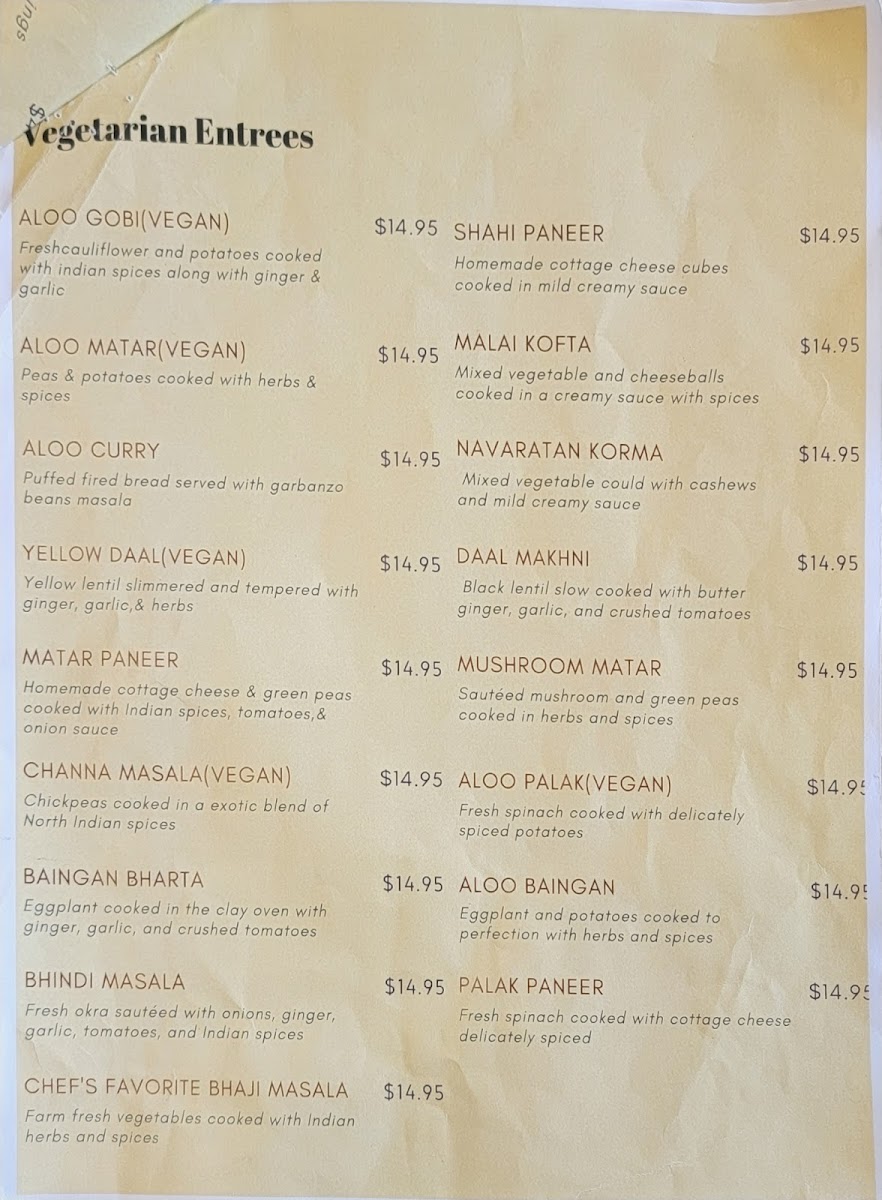 ings
$4
Vegetarian Entrees
ALOO GOBI(VEGAN) $14.95
Freshcauliflower and potatoes cooked
with indian spices along with ginger &
garlic
ALOO MATAR(VEGAN) $14.95
Peas & potatoes cooked with herbs &
spices
ALOO CURRY $14.95
Puffed fired bread served with garbanzo
beans masala
YELLOW DAAL(VEGAN) $14.95
Yellow lentil slimmered and tempered with
ginger, garlic,& herbs
MATAR PANEER $14.95
Homemade cottage cheese & green peas
cooked with Indian spices, tomatoes,&
onion sauce
CHANNA MASALA(VEGAN) $14.95
Chickpeas cooked in a exotic blend of
North Indian spices
BAINGAN BHARTA $14.95
Eggplant cooked in the clay oven with
ginger, garlic, and crushed tomatoes
BHINDI MASALA $14.95
Fresh okra sautéed with onions, ginger,
garlic, tomatoes, and Indian spices
CHEF'S FAVORITE BHAJI MASALA $14.95
Farm fresh vegetables cooked with Indian
herbs and spices
SHAHI PANEER $14.95
Homemade cottage cheese cubes
cooked in mild creamy sauce
MALAI KOFTA $14.95
Mixed vegetable and cheeseballs
cooked in a creamy sauce with spices
NAVARATAN KORMA $14.95
Mixed vegetable could with cashews
and mild creamy sauce
DAAL MAKHNI $14.95
Black lentil slow cooked with butter
ginger, garlic, and crushed tomatoes
MUSHROOM MATAR $14.95
Sautéed mushroom and green peas
cooked in herbs and spices
ALOO PALAK(VEGAN) $14.95
Fresh spinach cooked with delicately
spiced potatoes
ALOO BAINGAN $14.95
Eggplant and potatoes cooked to
perfection with herbs and spices
PALAK PANEER $14.95
Fresh spinach cooked with cottage cheese
delicately spiced